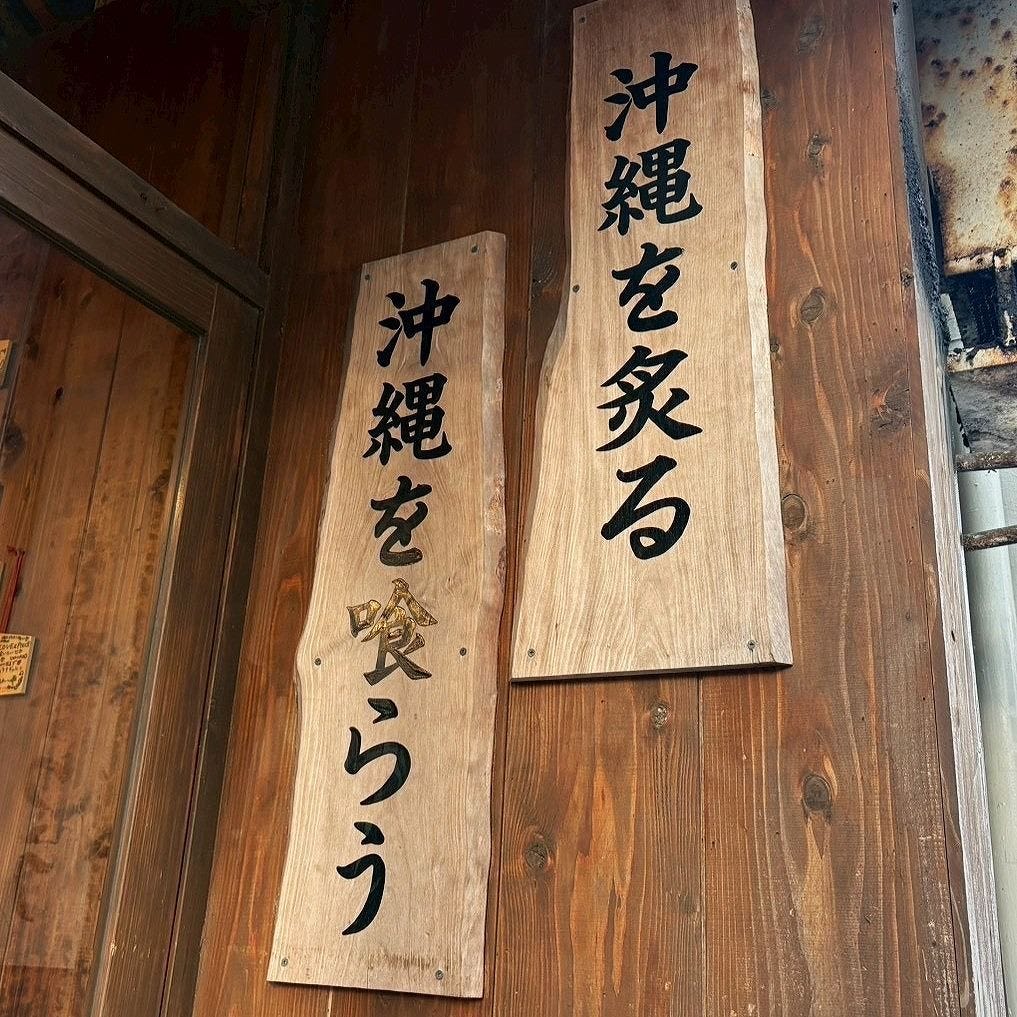 沖縄を炙る
沖縄を喰らう